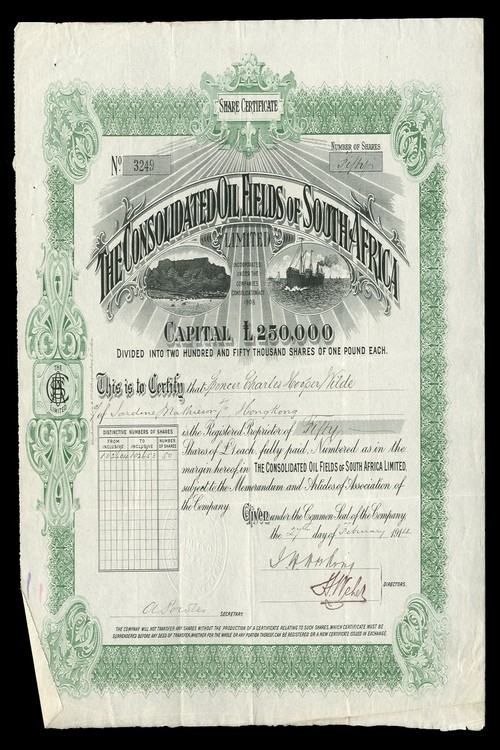 SHARE CERTIFICATE
No 3249
NUMBER OF SHARES
Fifty
THE CONSOLIDATED OIL FIELDS OF SOUTH AFRICA
LIMITED
INCORPORATED
UNDER THE
COMPANIES
CONSOLIDATION ACT
1908
CAPITAL £250,000
DIVIDED INTO TWO HUNDRED AND FIFTY THOUSAND SHARES OF ONE POUND EACH.
This is to Certify that Spencer Charles Cooper Wilde
of Jardine Matheson Hongkong
is the Registered Proprietor of Fifty
Shares of £1 each, fully paid, Numbered as in the
margin hereof, in THE CONSOLIDATED OIL FIELDS OF SOUTH AFRICA LIMITED,
subject to the Memorandum and Articles of Association of
the Company.
Given under the Common Seal of the Company
the 27th day of February 191
DISTINCTIVE NUMBERS OF SHARES
FROM INCLUSIVE
TO INCLUSIVE
NUMBER OF SHARES
50
THE
LIMITED
DIRECTORS.
SECRETARY.
THE COMPANY WILL NOT TRANSFER ANY SHARES WITHOUT THE PRODUCTION OF A CERTIFICATE RELATING TO SUCH SHARES, WHICH CERTIFICATE MUST BE
SURRENDERED BEFORE ANY DEED OF TRANSFER, WHETHER FOR THE WHOLE OR ANY PORTION THEREOF, CAN BE REGISTERED OR A NEW CERTIFICATE ISSUED IN EXCHANGE.